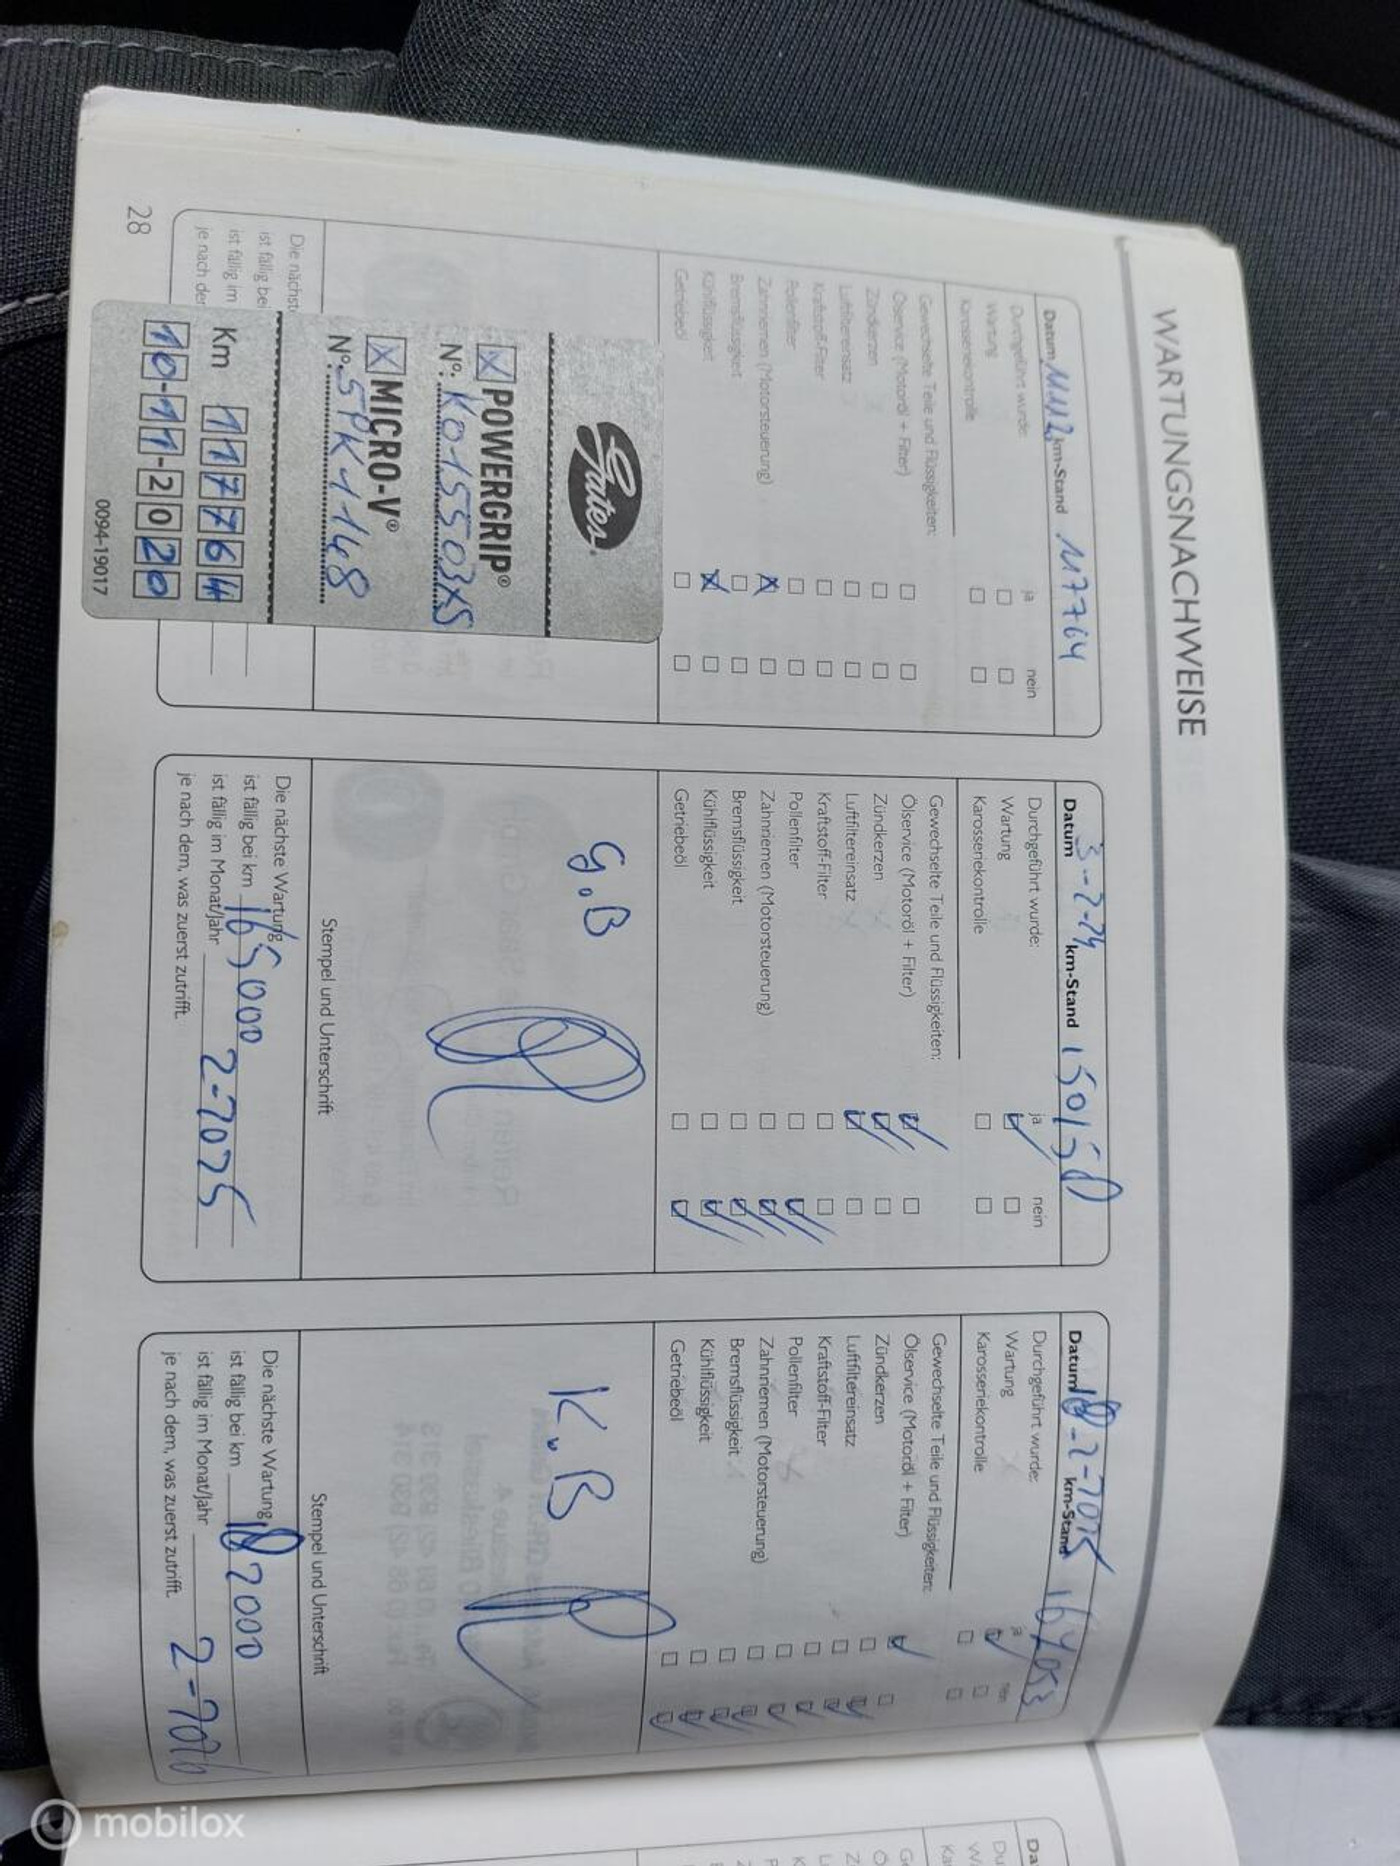 WARTUNGSNACHWEISE
Datum km-Stand 117764
Durchgeführt wurde: ja nein
Wartung
Karosseriekontrolle
Gewechselte Teile und Flüssigkeiten:
Ölservice (Motoröl + Filter)
Zündkerzen
Luftfiltereinsatz
Kraftstoff-Filter
Pollenfilter
Zahnriemen (Motorsteuerung)
Bremsflüssigkeit
Kühlflüssigkeit
Getriebeöl
Gates
X POWERGRIP®
N°: K015503XS
X MICRO-V®
N°: 5PK1148
Km 117764
10-11-2020
0094-19017
Die nächst
ist fällig bei
ist fällig im
je nach der
28
Datum 3-2-24 km-Stand 150150
Durchgeführt wurde: ja nein
Wartung
Karosseriekontrolle
Gewechselte Teile und Flüssigkeiten:
Ölservice (Motoröl + Filter)
Zündkerzen
Luftfiltereinsatz
Kraftstoff-Filter
Pollenfilter
Zahnriemen (Motorsteuerung)
Bremsflüssigkeit
Kühlflüssigkeit
Getriebeöl
G.B
Stempel und Unterschrift
Die nächste Wartung
ist fällig bei km 165000
ist fällig im Monat/Jahr 2-2025
je nach dem, was zuerst zutrifft.
Datum km-Stand
Durchgeführt wurde: ja nein
Wartung
Karosseriekontrolle
Gewechselte Teile und Flüssigkeiten:
Ölservice (Motoröl + Filter)
Zündkerzen
Luftfiltereinsatz
Kraftstoff-Filter
Pollenfilter
Zahnriemen (Motorsteuerung)
Bremsflüssigkeit
Kühlflüssigkeit
Getriebeöl
K.B
Stempel und Unterschrift
Die nächste Wartung
ist fällig bei km 182000
ist fällig im Monat/Jahr 2-2026
je nach dem, was zuerst zutrifft.
mobilox